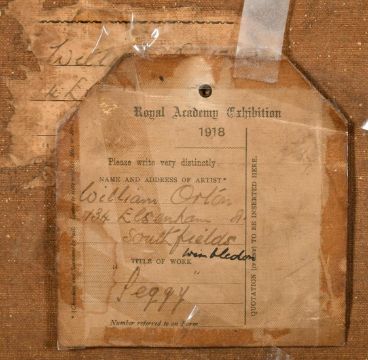 Will
Royal Academy Exhibition
1918
Please write very distinctly
NAME AND ADDRESS OF ARTIST*
William Orton
134 Elsenham
Southfields
Wimbledon
TITLE OF WORK
"Peggy"
Number referred to on Form
QUOTATION TO BE INSERTED HERE.